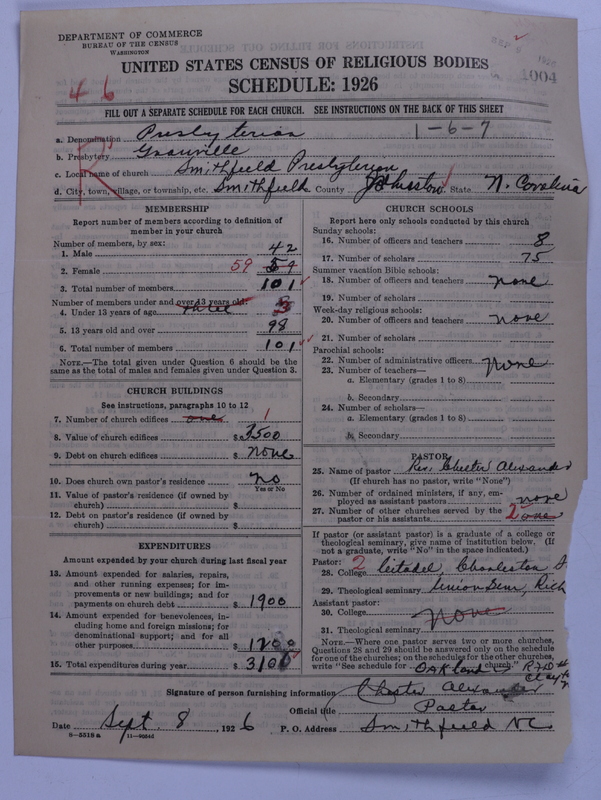 DEPARTMENT OF COMMERCE
BUREAU OF THE CENSUS
WASHINGTON
1004
UNITED STATES CENSUS OF RELIGIOUS BODIES
SCHEDULE: 1926
4 6
FILL OUT A SEPARATE SCHEDULE FOR EACH CHURCH. SEE INSTRUCTIONS ON THE BACK OF THIS SHEET
a. Denomination Presbyterian 1-6-7
b. Presbytery Granville
c. Local name of church Smithfield Presbyterian
d. City, town, village, or township, etc. Smithfield County Johnston State N. Carolina
R
MEMBERSHIP
Report number of members according to definition of member in your church
Number of members, by sex:
1. Male 42
2. Female 59 59
3. Total number of members 101
Number of members under and over 13 years old:
4. Under 13 years of age three 3
5. 13 years old and over 98
6. Total number of members 101
NOTE.—The total given under Question 6 should be the same as the total of males and females given under Question 3.
CHURCH BUILDINGS
See instructions, paragraphs 10 to 12
7. Number of church edifices one 1
8. Value of church edifices $ 3500
9. Debt on church edifices $ none
10. Does church own pastor's residence no
Yes or No
11. Value of pastor's residence (if owned by church) $
12. Debt on pastor's residence (if owned by church) $
EXPENDITURES
Amount expended by your church during last fiscal year
13. Amount expended for salaries, repairs, and other running expenses; for improvements or new buildings; and for payments on church debt $ 1900
14. Amount expended for benevolences, including home and foreign missions; for denominational support; and for all other purposes $ 1200
15. Total expenditures during year $ 3100
CHURCH SCHOOLS
Report here only schools conducted by this church
Sunday schools:
16. Number of officers and teachers 8
17. Number of scholars 75
Summer vacation Bible schools:
18. Number of officers and teachers none
19. Number of scholars
Week-day religious schools:
20. Number of officers and teachers none
21. Number of scholars
Parochial schools:
22. Number of administrative officers none
23. Number of teachers—
a. Elementary (grades 1 to 8)
b. Secondary
24. Number of scholars—
a. Elementary (grades 1 to 8)
b. Secondary
PASTOR
25. Name of pastor Rev. Chester Alexander
(If church has no pastor, write "None")
26. Number of ordained ministers, if any, employed as assistant pastors none
27. Number of other churches served by the pastor or his assistants 2 one
If pastor (or assistant pastor) is a graduate of a college or theological seminary, give name of institution below. (If not a graduate, write "No" in the space indicated.)
Pastor: 2
28. College Citadel, Charleston S.
29. Theological seminary Union Sem, Rich
Assistant pastor:
30. College None
31. Theological seminary
NOTE.—Where one pastor serves two or more churches, Questions 28 and 29 should be answered only on the schedule for one of the churches; on the schedules for the other churches, write "See schedule for Oakland church." R.F.D.
Clayton
Signature of person furnishing information Chester Alexander
Official title Pastor
Date Sept. 8, 1926 P. O. Address Smithfield NC
9—5518 a